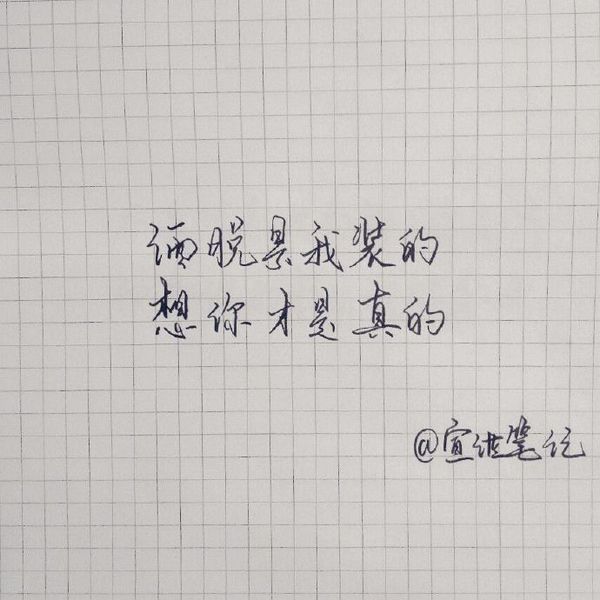 洒脱是我装的
想你才是真的
@宣 笔记